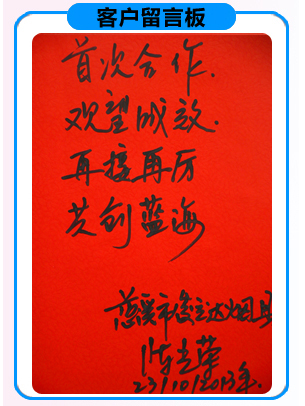 客户留言板
首次合作.
观望成效.
再接再厉
共创蓝海
慈溪市俊达烟具
陈立荣
23/10/2013年.